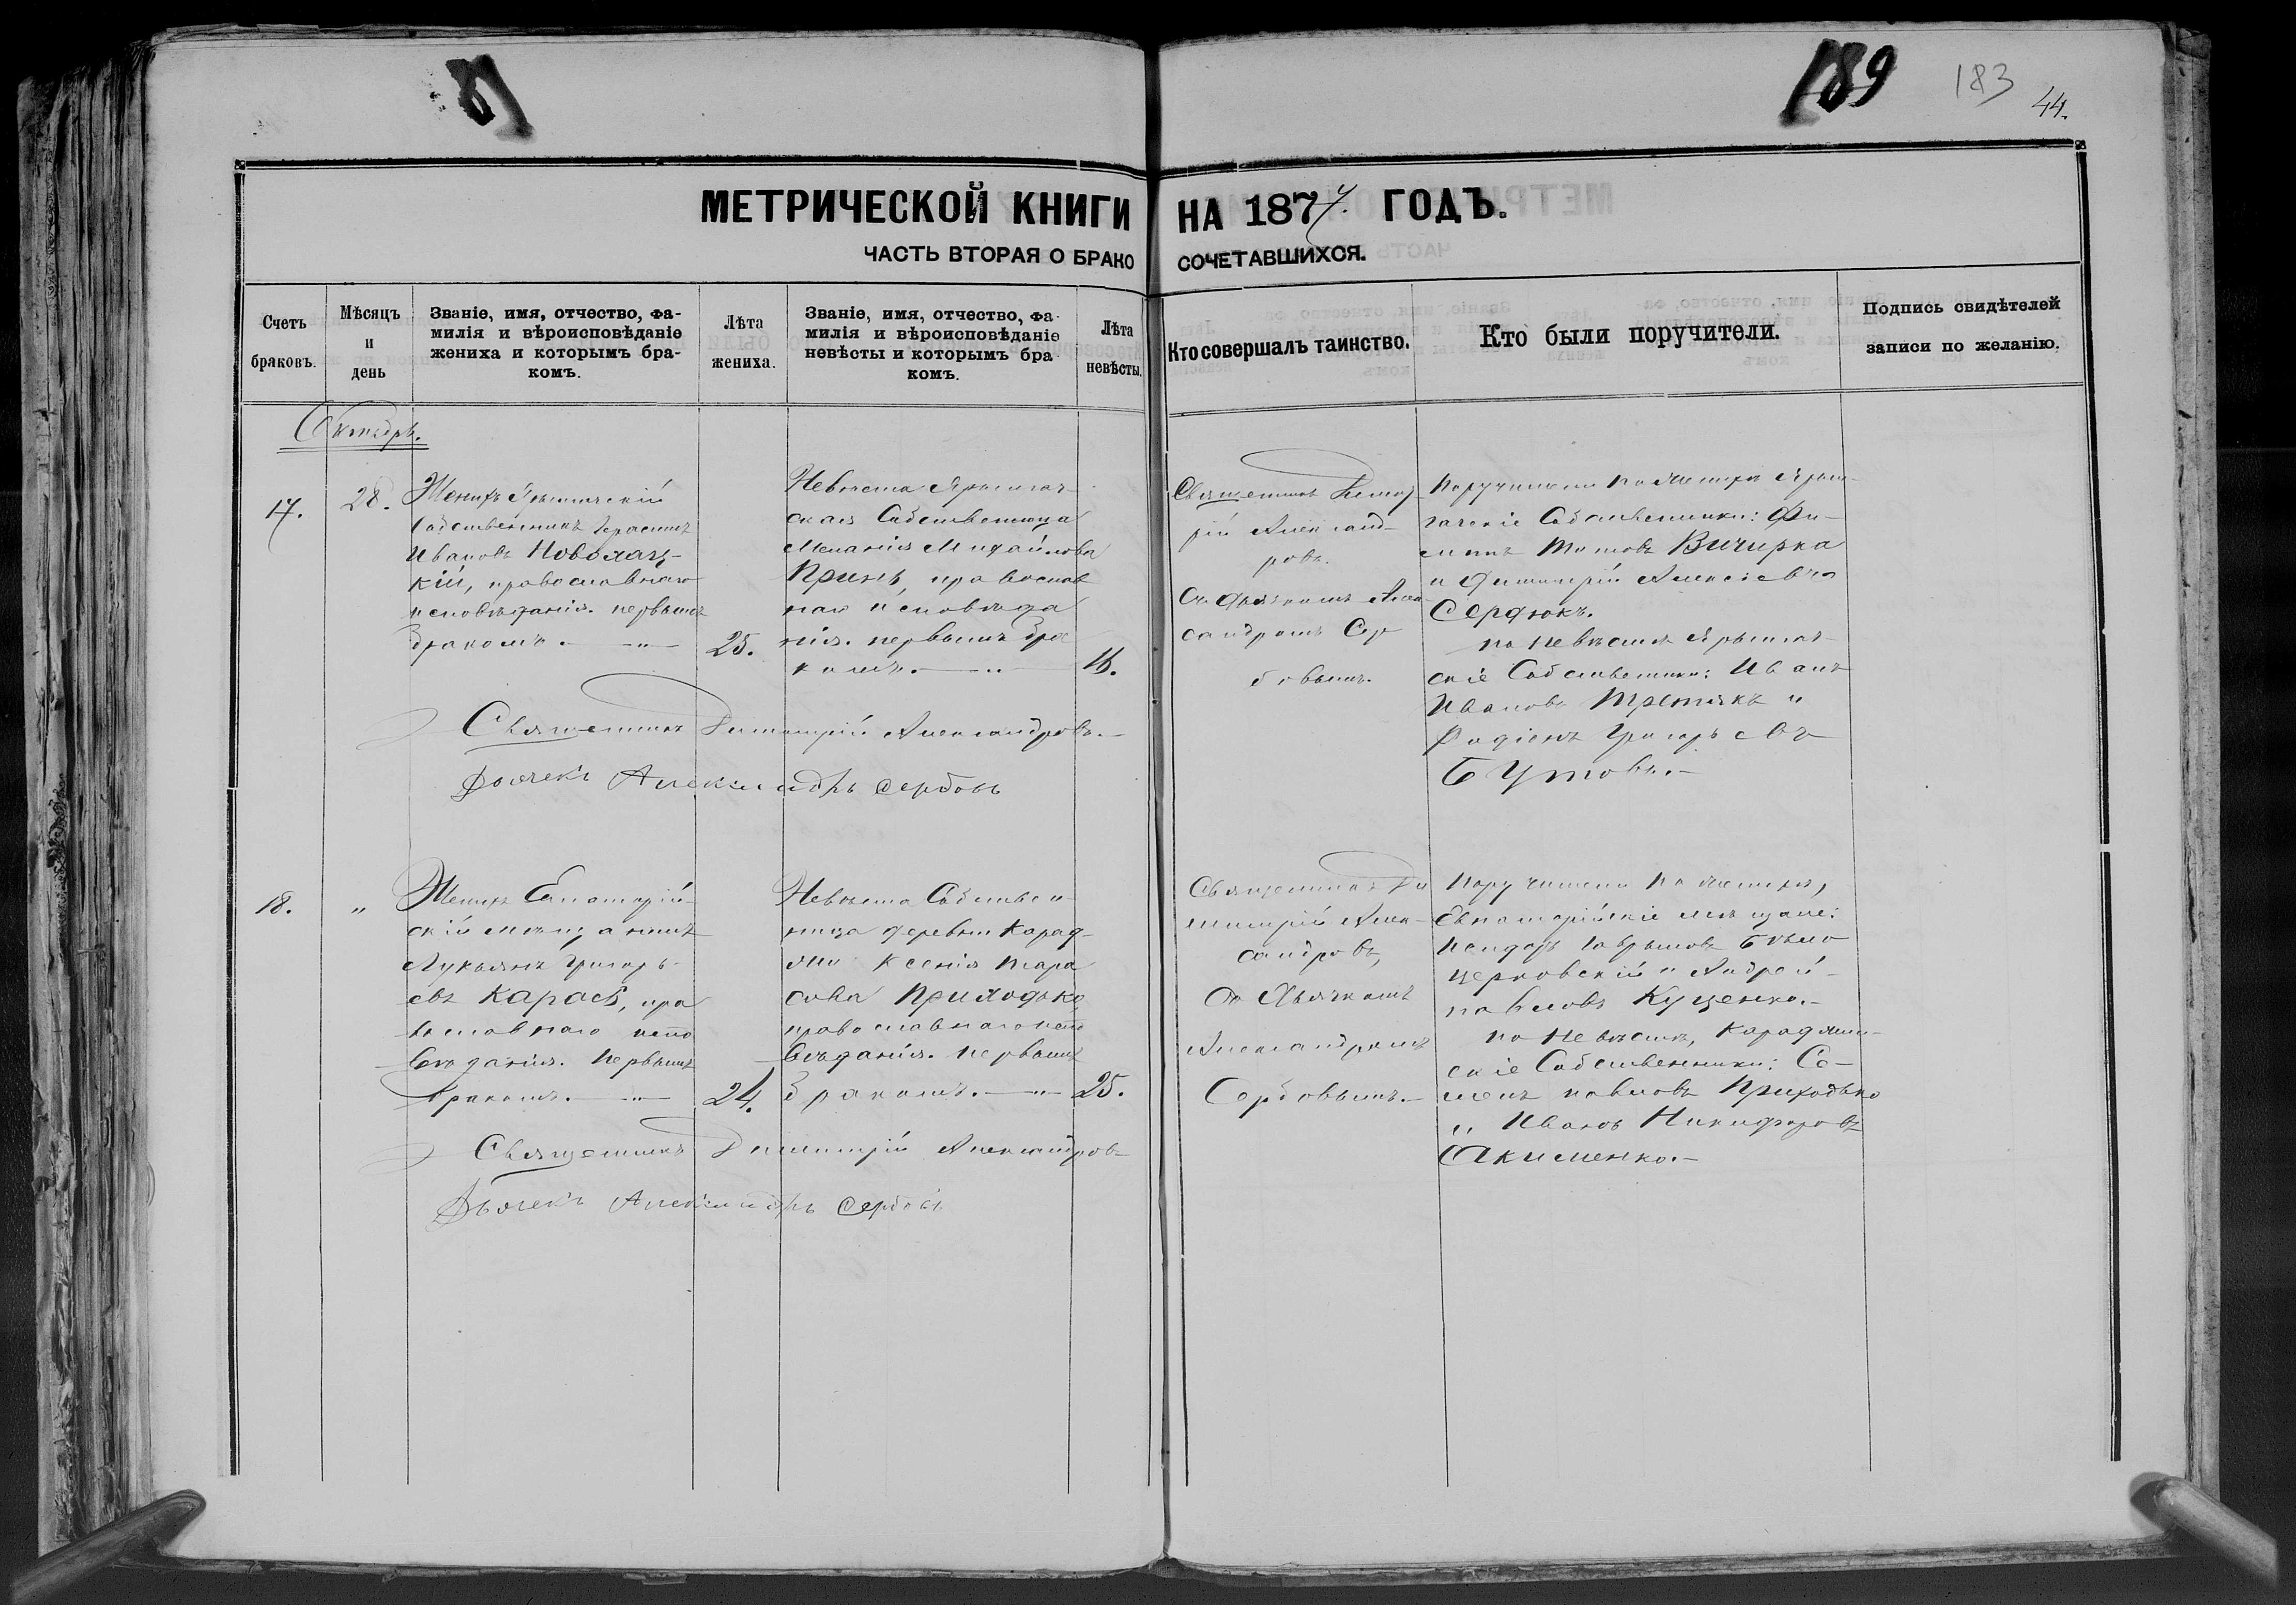 189
183
44.
МЕТРИЧЕСКОЙ КНИГИ НА 1877. ГОДЪ.
ЧАСТЬ ВТОРАЯ О БРАКОСОЧЕТАВШИХСЯ.
Счетъ браковъ.
Мѣсяцъ и день
Званіе, имя, отчество, фа-
милія и вѣроисповѣданіе
жениха и которымъ бра-
комъ.
Лѣта жениха.
Званіе, имя, отчество, фа-
милія и вѣроисповѣданіе
невѣсты и которымъ бра
комъ.
Лѣта невѣсты.
Кто совершалъ таинство.
Кто были поручители.
Подпись свидѣтелей
записи по желанію.
Октябрь.
17.
28.
Женихъ
Собственникъ Герасимъ
Ивановъ
кій, православнаго
исповѣданія. первымъ
бракомъ.
25.
Невѣста
ская Собственница
Меланія Михайлова
православ
наго исповѣда
нія. первымъ бра
комъ.
Священникъ Димит
рій Александ-
ровъ.
Съ дьячкомъ Алек
сандромъ Сер
бовымъ.
Поручители по женихѣ
Собственники: Фи-
липъ Титовъ Вичирка
и Димитрій Алексіевъ
Сердюкъ.
по невѣстѣ
скіе Собственники: Иванъ
Ивановъ Третякъ и
Родіонъ Григорьевъ
Бутовъ.
Священникъ Димитрій Александровъ.
Дьячекъ Александръ Сербовъ
18.
"
Женихъ Евпаторій-
скій мѣщанинъ
Лукьянъ Григорь-
евъ Карась, пра
вославнаго испо
вѣданія. Первымъ
бракомъ.
24.
Невѣста Собствен-
ница деревни Карад-
жи Ксенія Тара
сова Приходько,
православнаго испо
вѣданія. первымъ
бракомъ.
25.
Священникъ Ди
митрій Алек-
сандровъ,
Съ Дьячкомъ
Александромъ
Сербовымъ.
Поручители по женихѣ,
Евпаторійскіе мѣщане:
Бѣло
церковскій и Андрей
Павловъ Куценко.
по Невѣстѣ,
скіе Собственники: Се-
менъ Павловъ Приходько
и Иванъ Никифоровъ
Акименко.
Священникъ Димитрій Александровъ
Дьячекъ Александръ Сербовъ